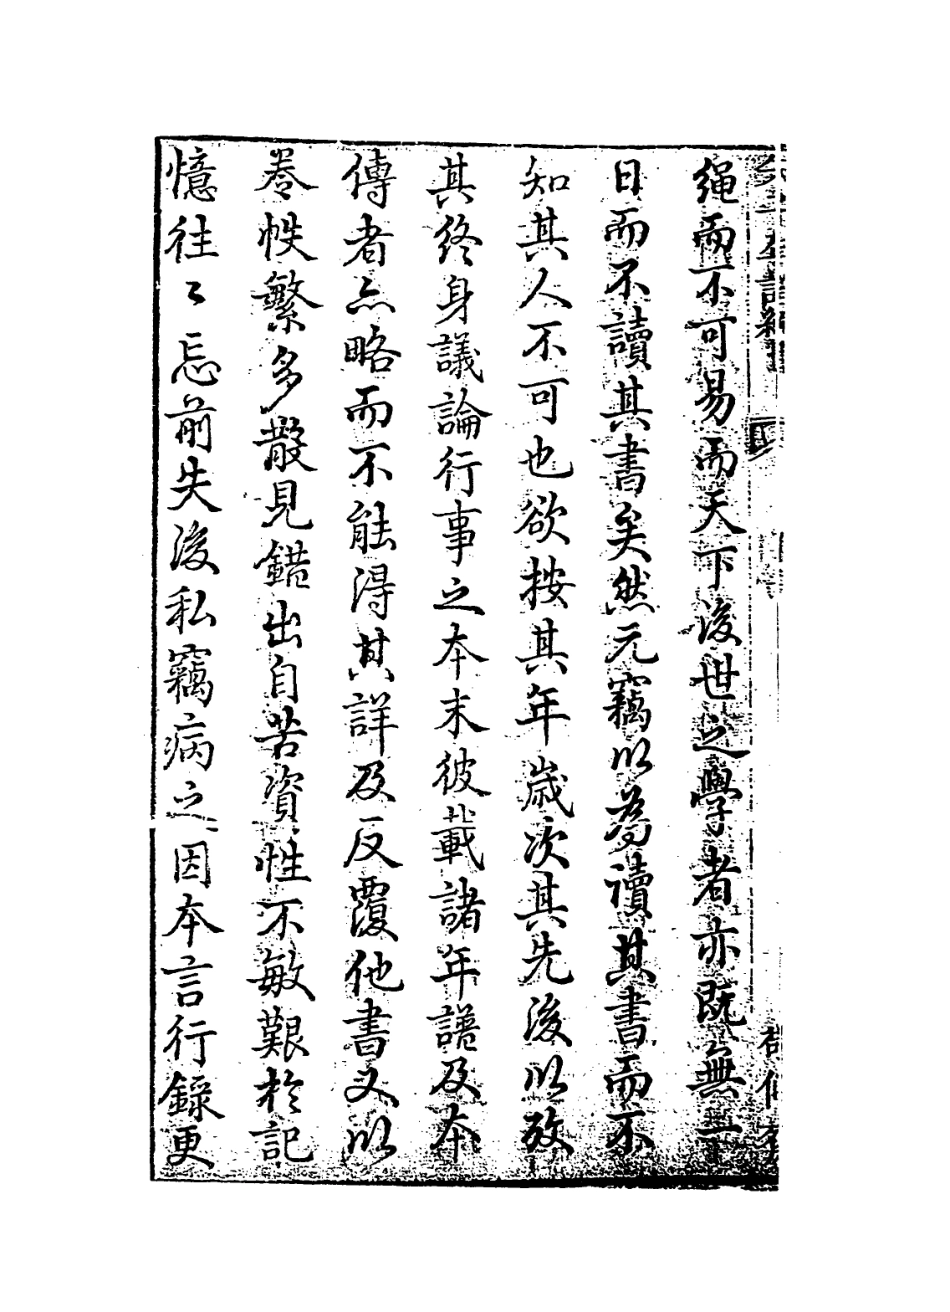 繩而不可易而天下後世之學者亦既無一
日而不讀其書矣然元竊以為讀其書而不
知其人不可也欲按其年歲次其先後以致
其終身議論行事之本末彼載諸年譜及本
傳者亦略而不能得其詳及反覆他書又以
卷帙繁多散見錯出自苦資性不敏艱於記
憶往〻忘前失後私竊病之因本言行錄更